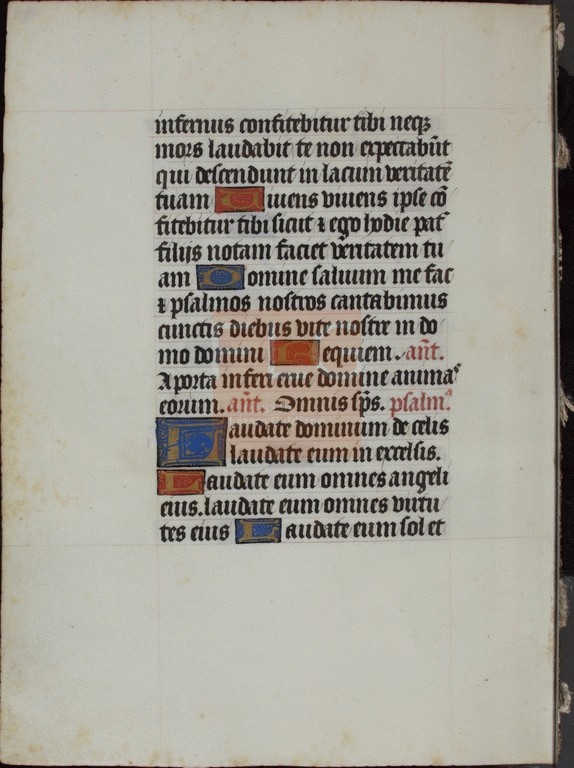 infernus confitebitur tibi neqꝫ
mors laudabit te non expectabūt
qui descendunt in lacum veritatē
tuam Viuens viuens ipse cō
fitebitur tibi sicut ⁊ ego hodie pat᷑
filijs notam faciet veritatem tu
am Domine saluum me fac
⁊ psalmos nostros cantabimus
cunctis diebus vite nostre in do
mo domini Requiem. añt.
A porta inferi erue domine animaˢ
eorum. añt. Omnis sp̄s. psalmꝰ.
Laudate dominum de celis
laudate eum in excelsis.
Laudate eum omnes angeli
eius. laudate eum omnes virtu
tes eius Laudate eum sol et